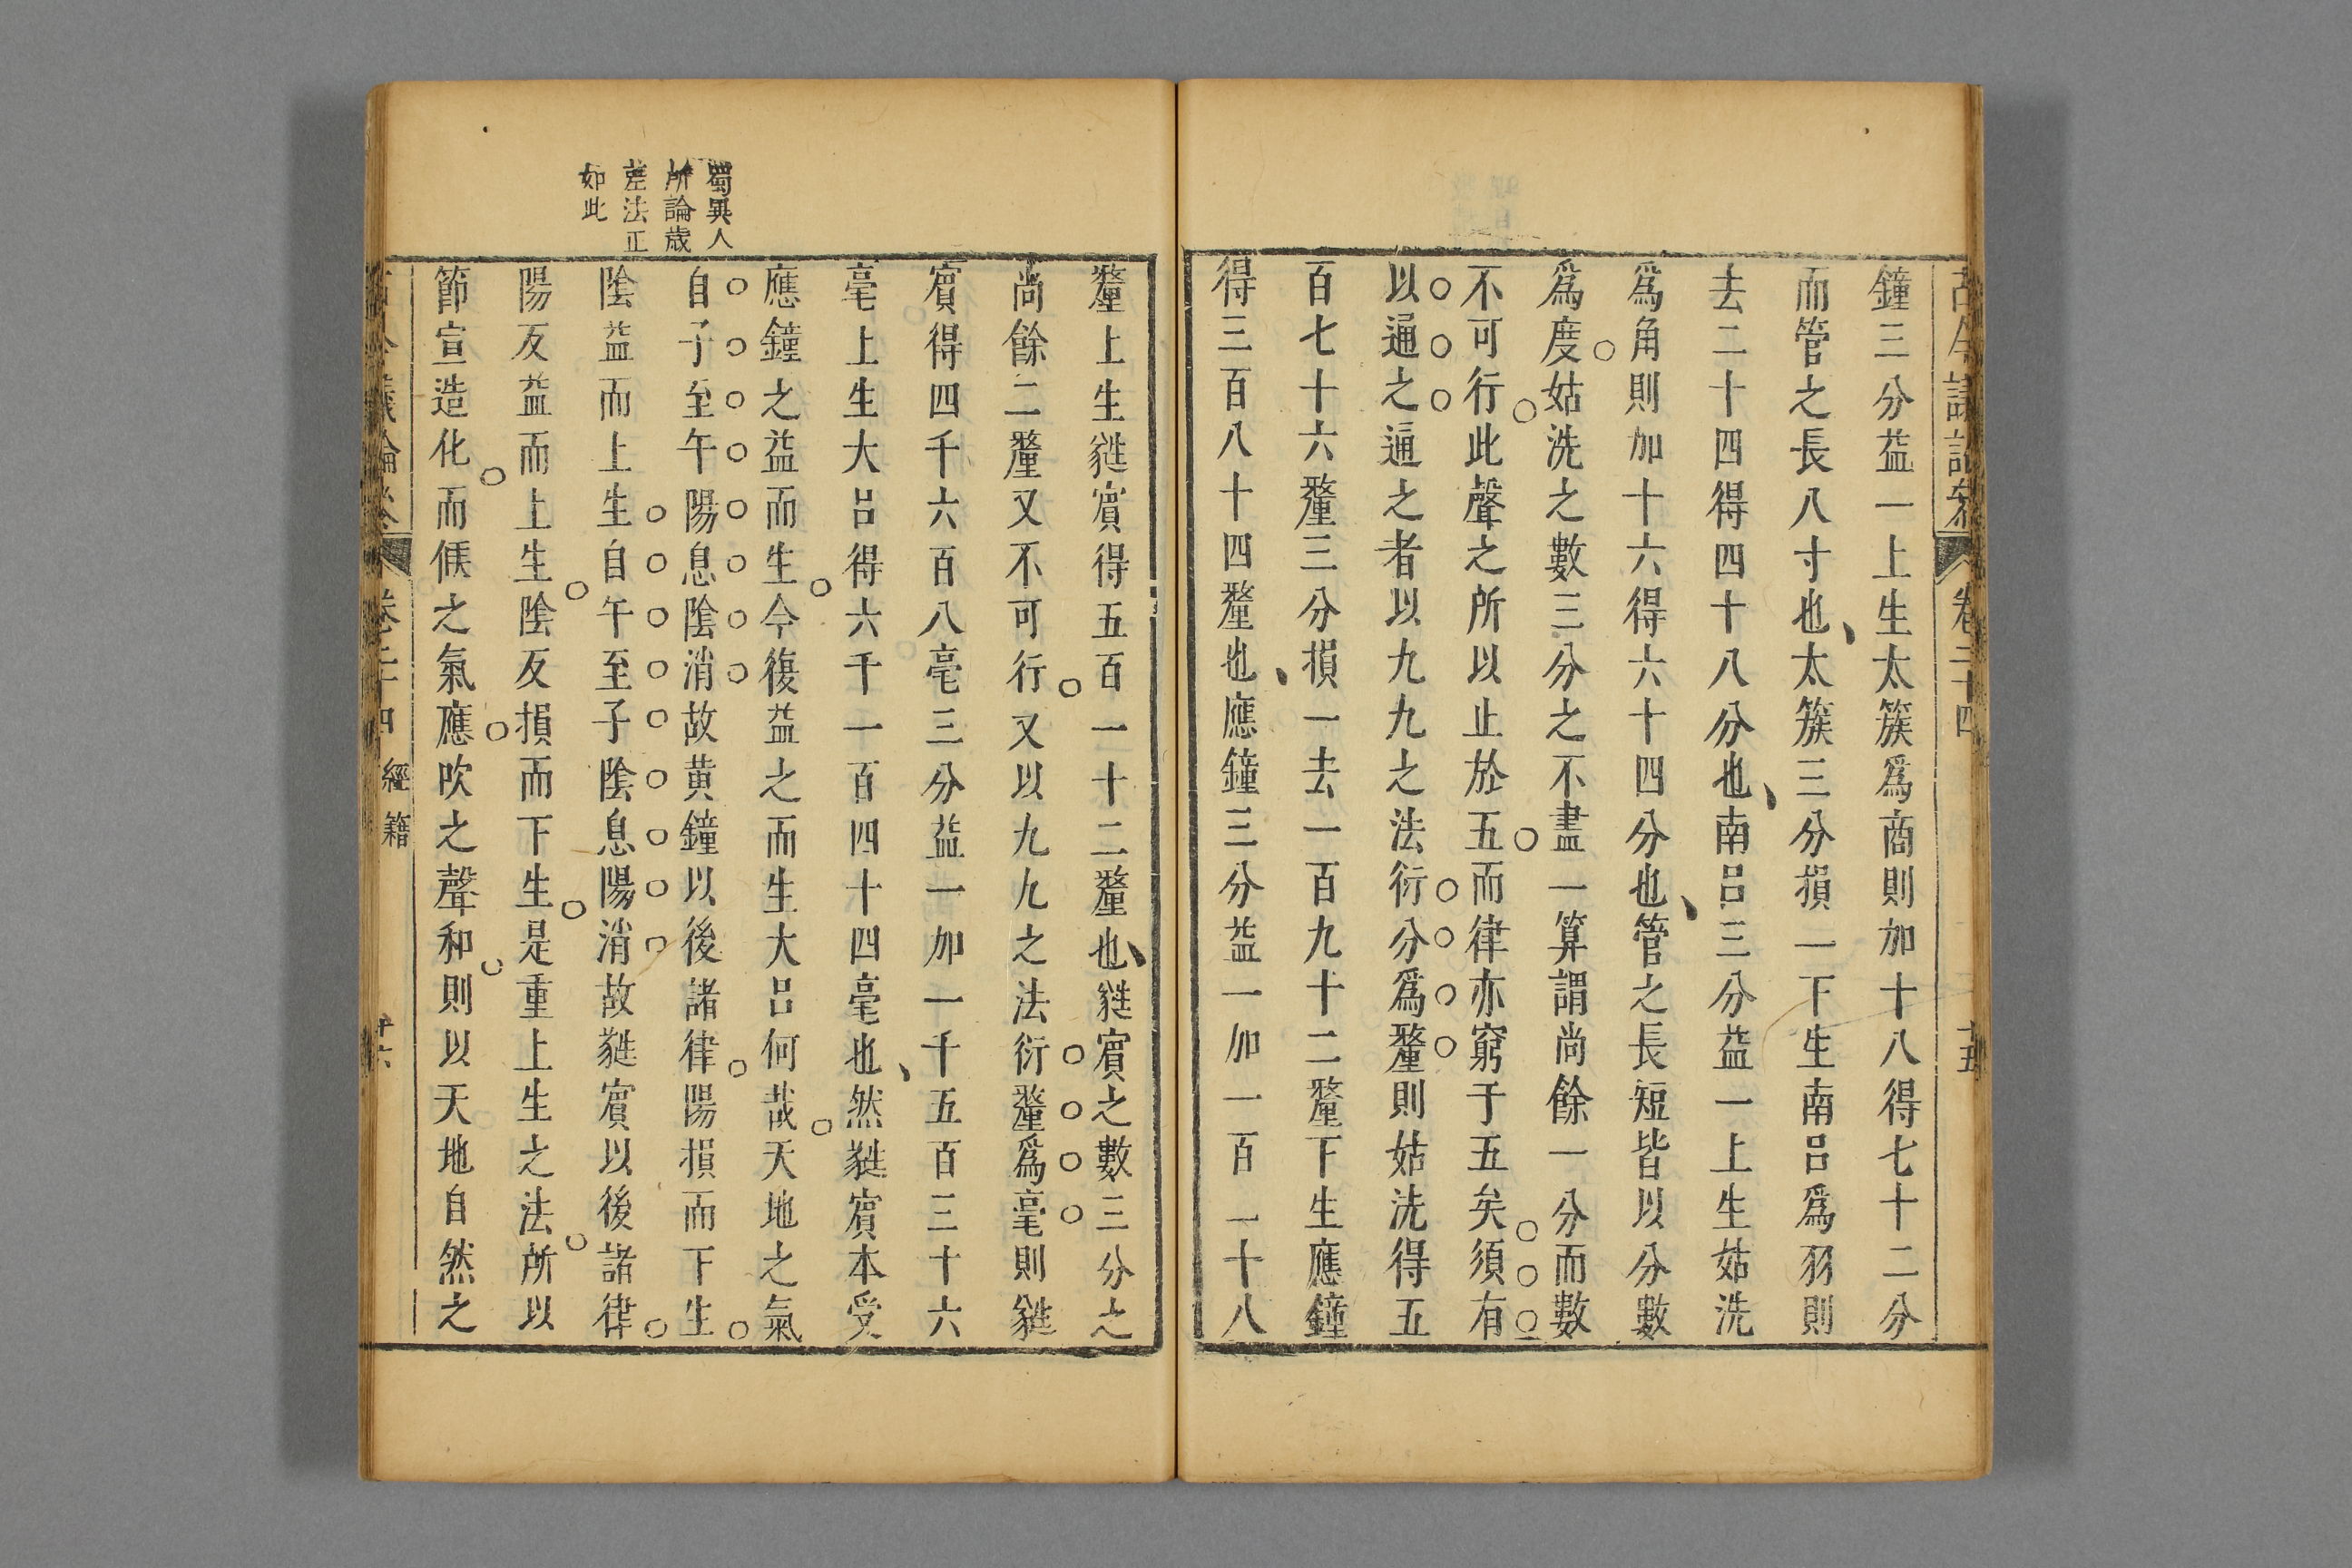 卷二十四
十五
鐘三分益一上生太簇爲商則加十八得七十二分
而管之長八寸也太簇三分損一下生南呂爲羽則
去二十四得四十八分也南呂三分益一上生姑洗
爲角則加十六得六十四分也管之長短皆以分數
爲度姑洗之數三分之不盡一算謂尚餘一分而數
不可行此聲之所以止於五而律亦窮于五矣須有
以通之通之者以九九之法衍分爲釐則姑洗得五
百七十六釐三分損一去一百九十二釐下生應鐘
得三百八十四釐也應鐘三分益一加一百二十八
釐上生蕤賓得五百一十二釐也蕤賓之數三分之
尚餘二釐又不可行又以九九之法衍釐爲毫則蕤
賓得四千六百八毫三分益一加一千五百三十六
毫上生大呂得六千一百四十四毫也然蕤賓本受
應鐘之益而生今復益之而生大呂何哉天地之氣
自子至午陽息陰消故黃鐘以後諸律陽損而下生
陰益而上生自午至子陰息陽消故蕤賓以後諸律
陽反益而上生陰反損而下生是重上生之法所以
節宣造化而候之氣應吹之聲和則以天地自然之
蜀異人
所論歲
差法正
如此
經籍
十六